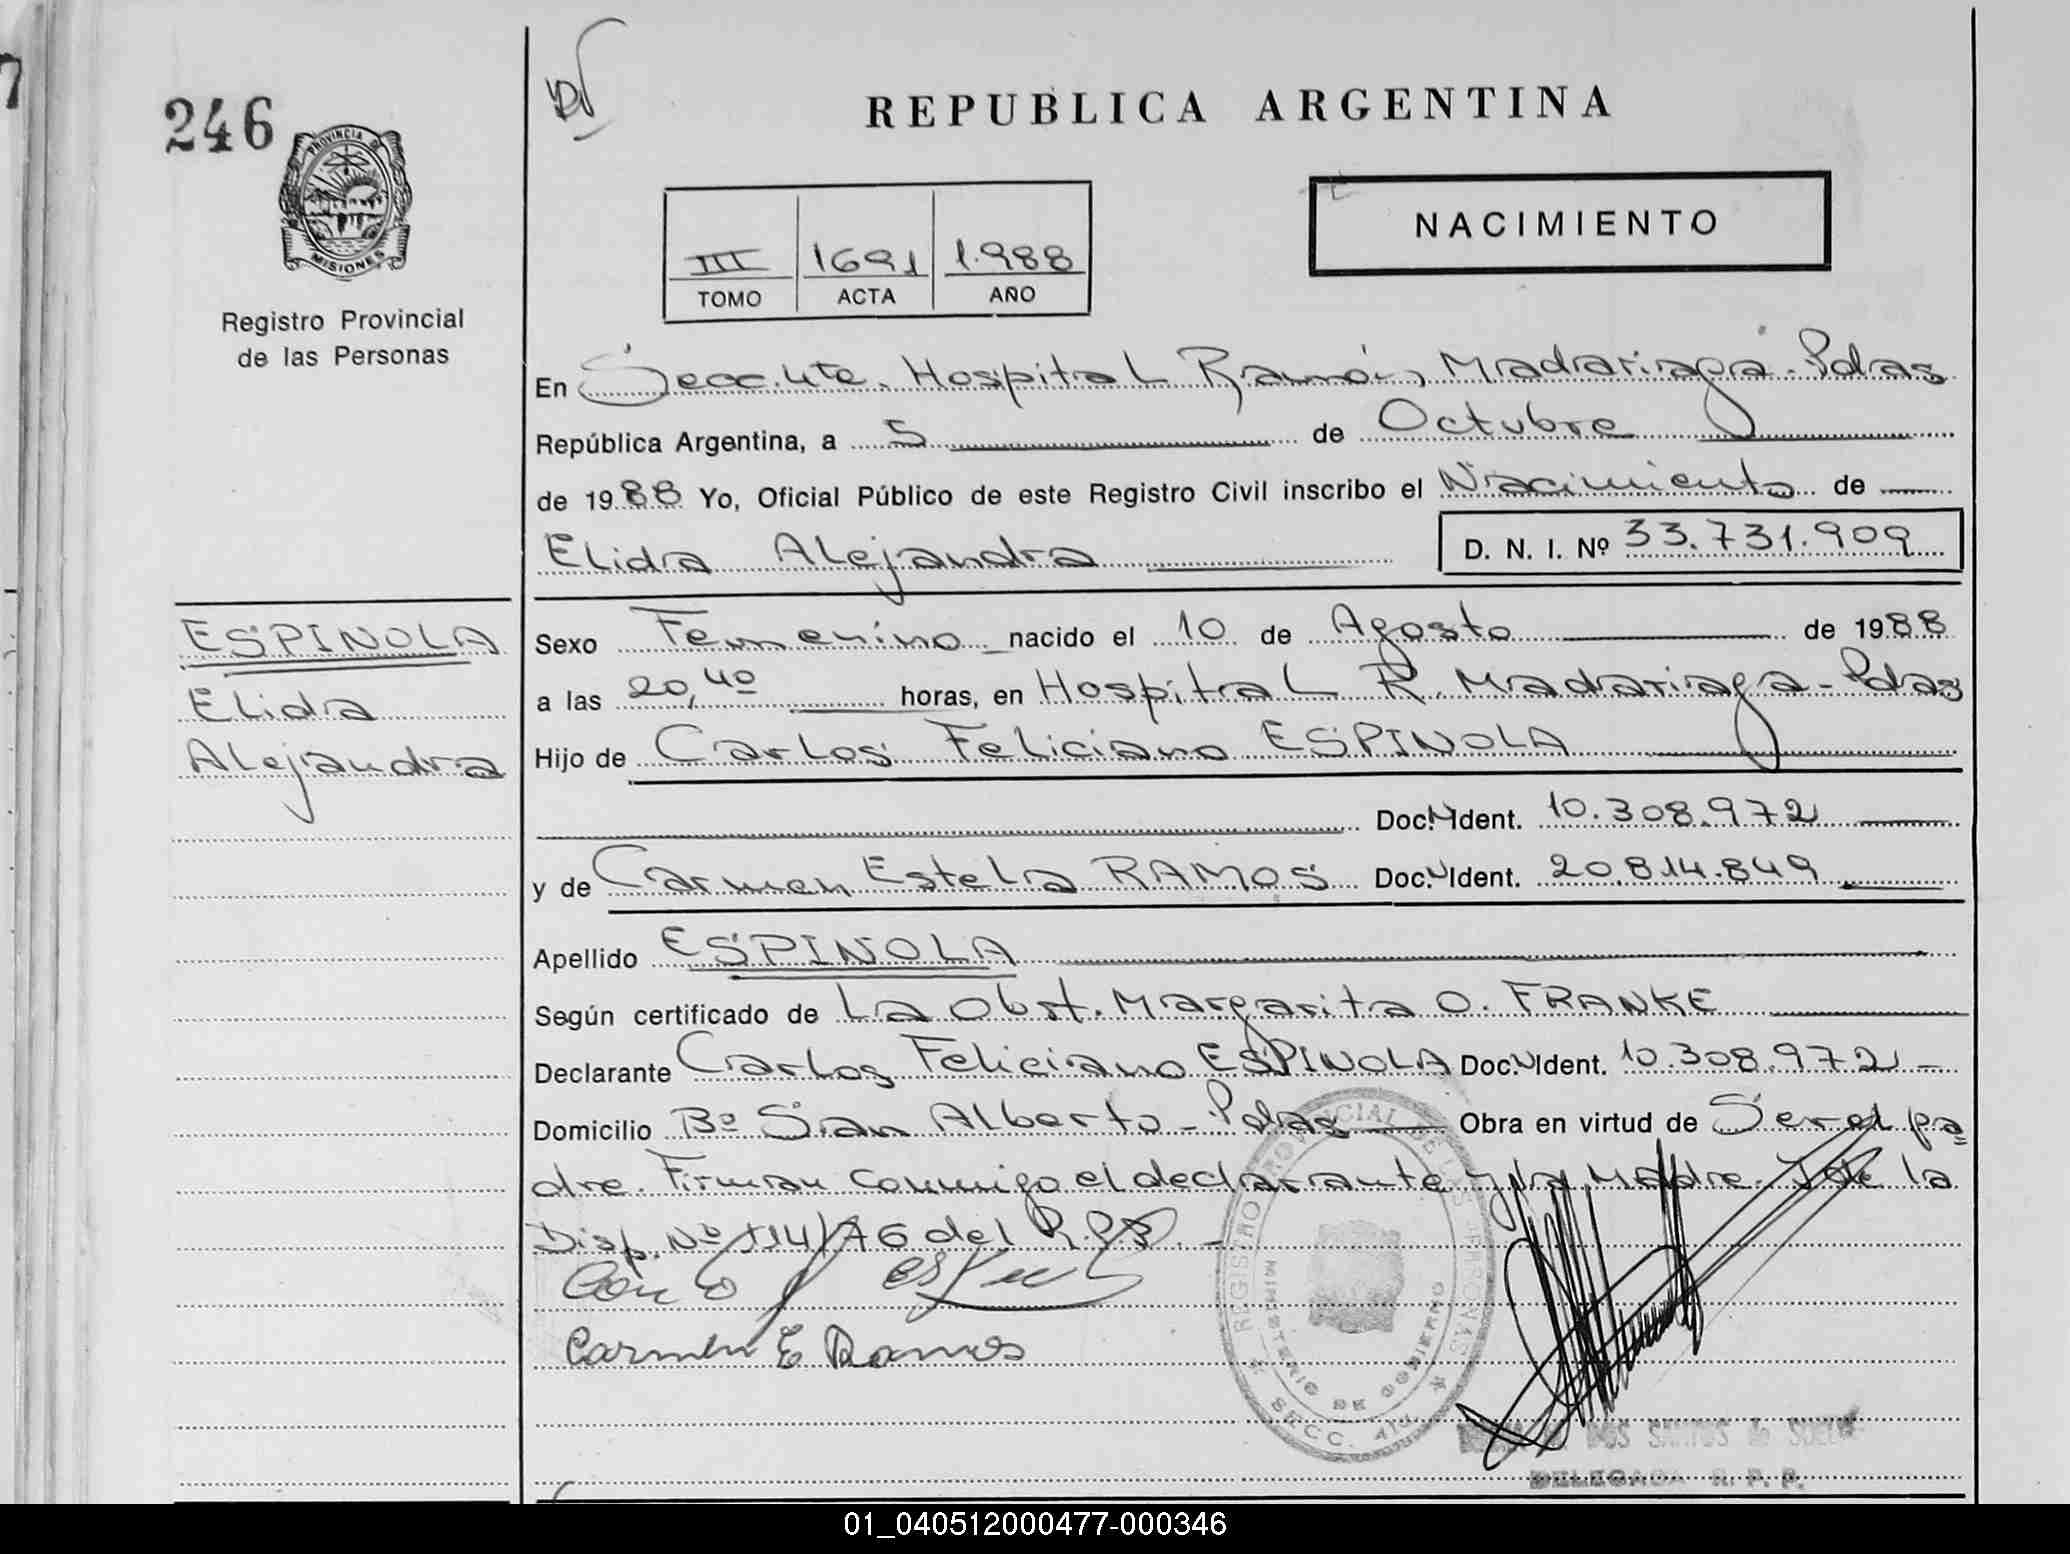 246
REPUBLICA ARGENTINA
PROVINCIA DE
MISIONES
Registro Provincial
de las Personas
III 1691 1.988
TOMO ACTA AÑO
NACIMIENTO
En Secc. 4ta. Hospital Ramón Madariaga - Pdas
República Argentina, a 5 de Octubre
de 1988 Yo, Oficial Público de este Registro Civil inscribo el Nacimiento de
Elida Alejandra D. N. I. Nº 33.731.909
ESPINOLA
Elida
Alejandra
Sexo Femenino nacido el 10 de Agosto de 1988
a las 20,40 horas, en Hospital R. Madariaga - Pdas
Hijo de Carlos Feliciano ESPINOLA
Doc. N Ident. 10.308.972
y de Carmen Estela RAMOS Doc. N Ident. 20.814.849
Apellido ESPINOLA
Según certificado de La Obst. Margarita O. FRANKE
Declarante Carlos Feliciano ESPINOLA Doc. N Ident. 10.308.972
Domicilio Bº San Alberto - Pdas Obra en virtud de Ser el pa
dre. Firman conmigo el declarante y la Madre. la
Disp. Nº 114/76 del R.P.P. -
Carmen E Ramos
REGISTRO PROVINCIAL DE LAS PERSONAS
MINISTERIO DE GOBIERNO
SECC. 4ta
DOS SANTOS de
DELEGADA R. P. P.
01_040512000477-000346